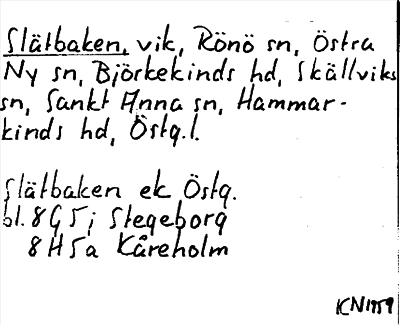 Slätbaken, vik, Rönö sn, Östra
Ny sn, Björkekinds hd, Skällviks
sn, Sankt Anna sn, Hammar-
kinds hd, Östg.l.
Slätbaken ek Östg.
bl. 8G5j Stegeborg
8H5a Kåreholm
KN1959